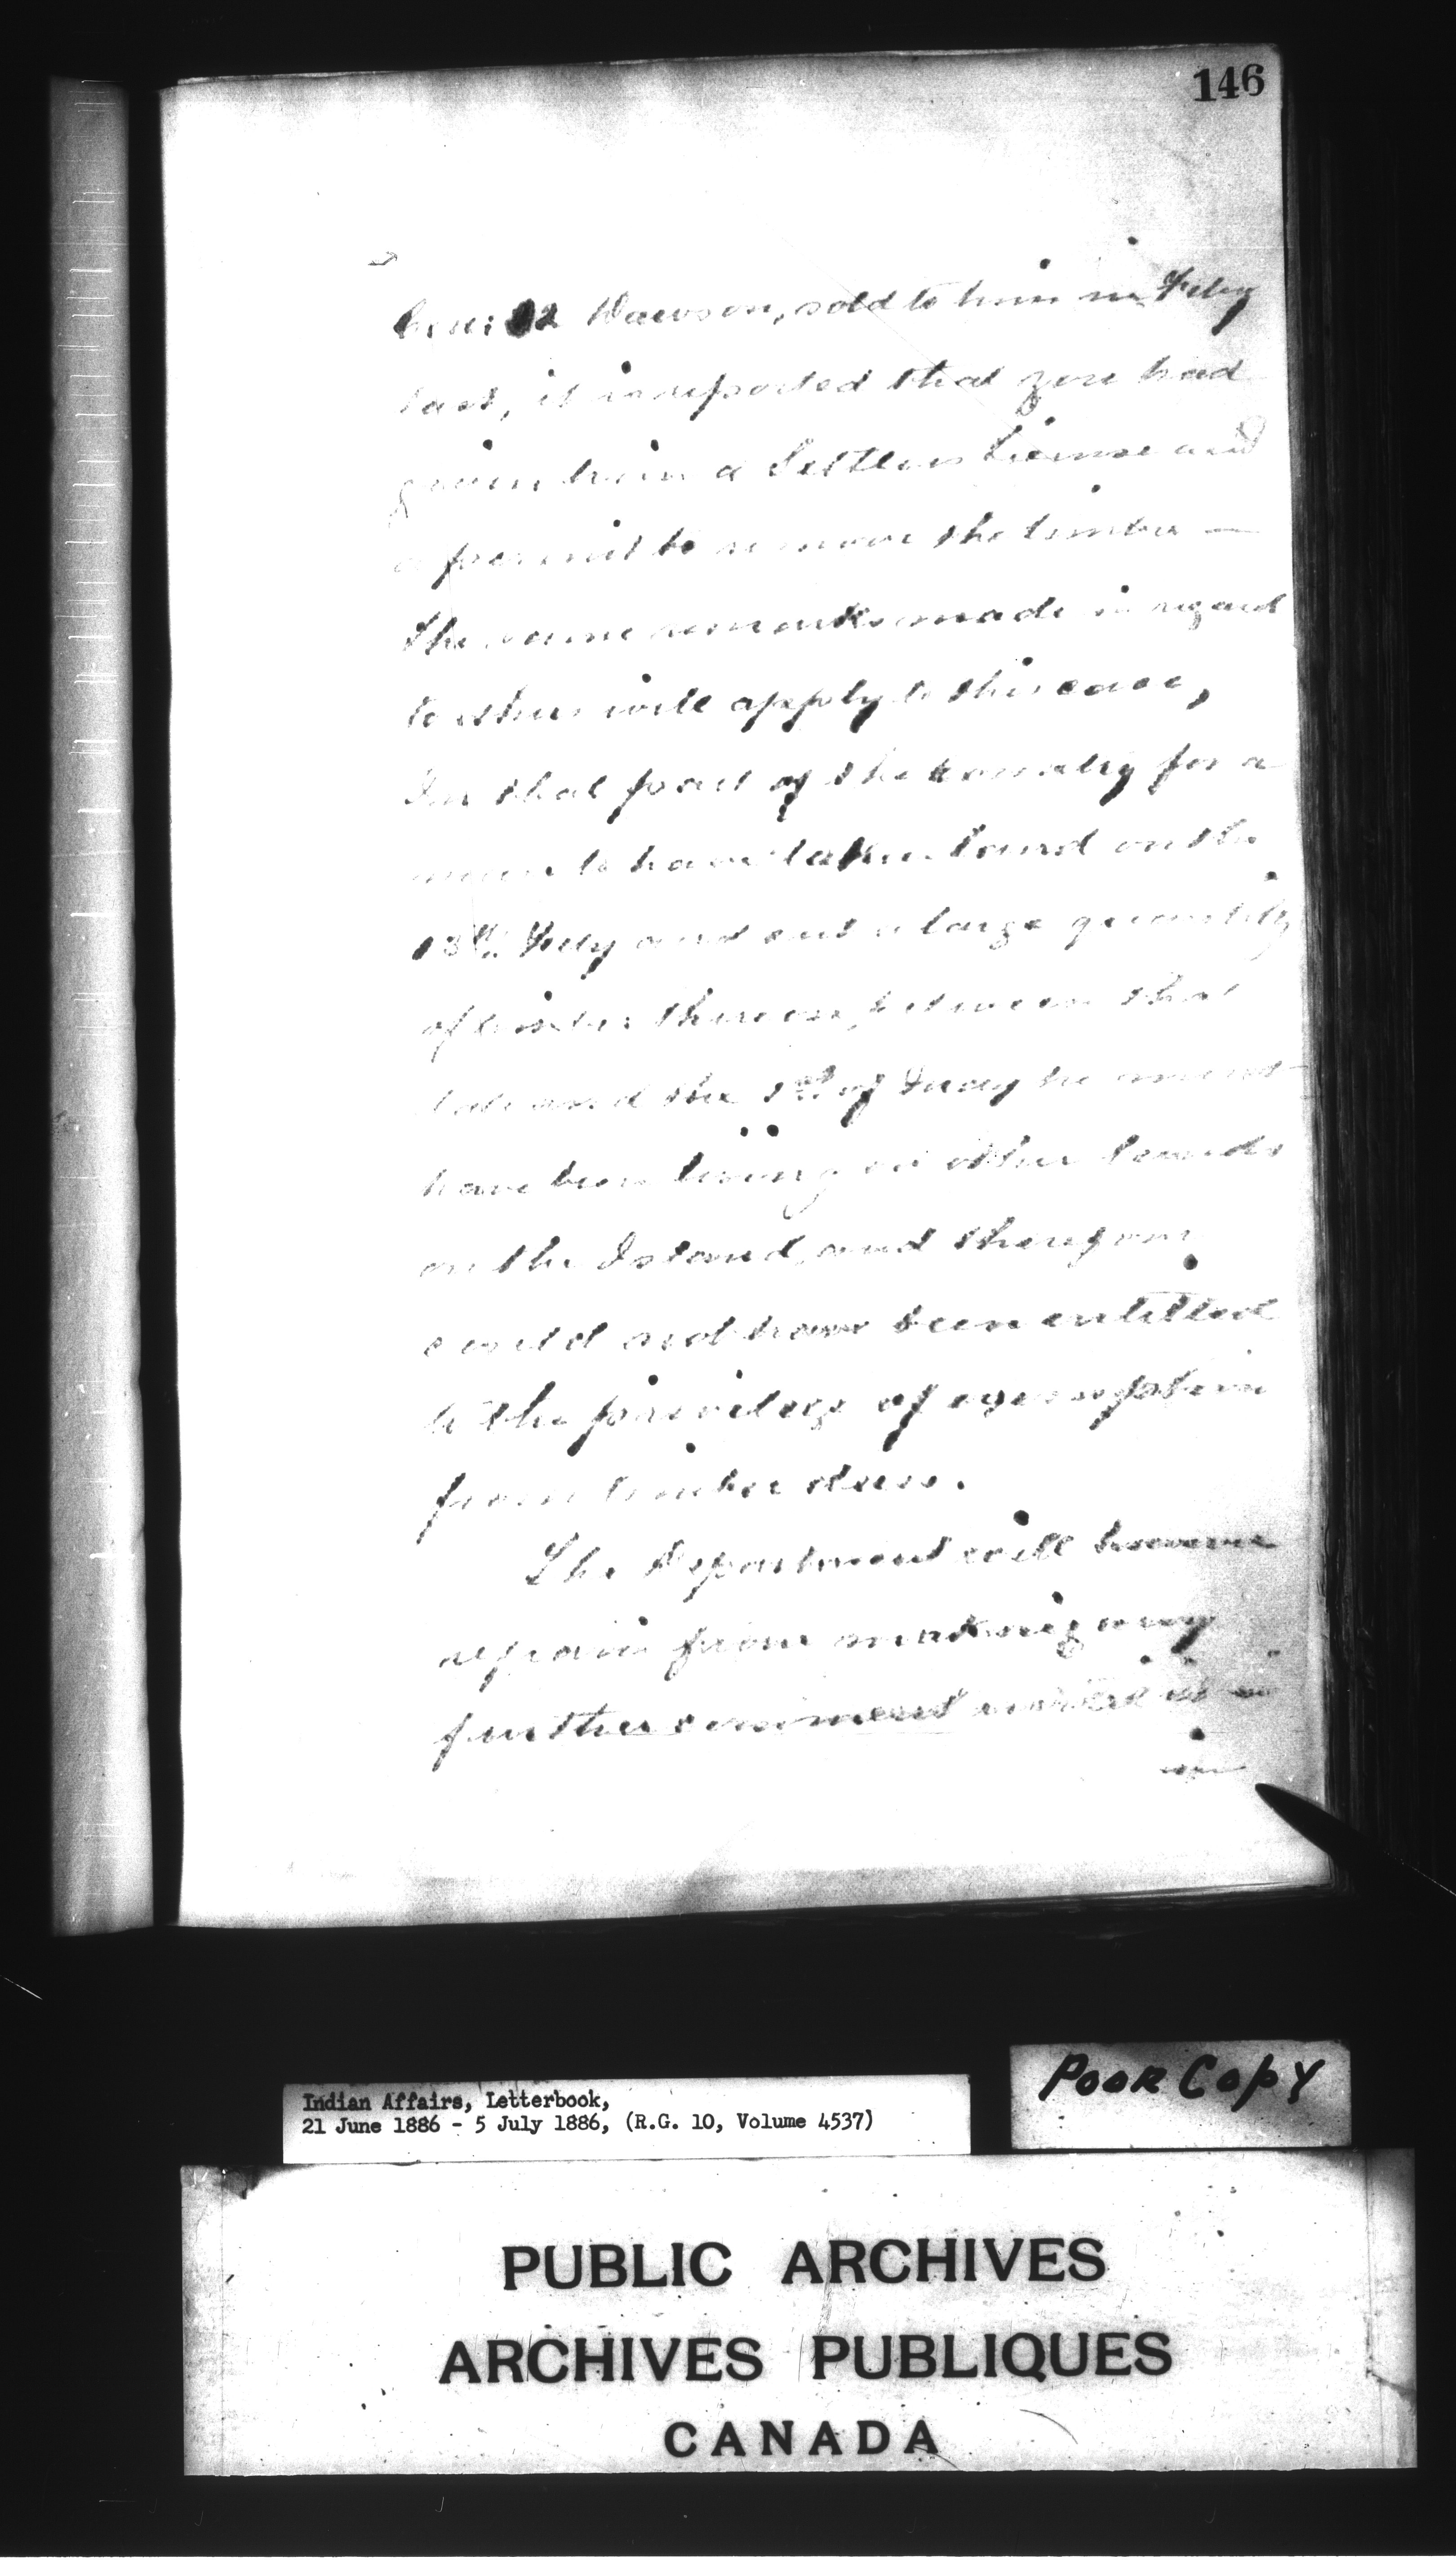 146
Con: 12 Dawson, sold to him in Feby
last, it is reported that you had
given him a Settlers License and
a permit to remove the timber —
The same remarks made in regard
to others will apply to this case,
In that part of the country for a
man to have taken land on the
13th. Feby and cut a large quantity
of timber thereon, between that
date and the 1st of May he must
have been living on other lands
on the Island, and therefore
could not have been entitled
to the privilege of exemption
from timber dues.
The Department will however
refrain from making any
further comment until it
in
Indian Affairs, Letterbook,
21 June 1886 - 5 July 1886, (R.G. 10, Volume 4537)
POOR COPY
PUBLIC ARCHIVES
ARCHIVES PUBLIQUES
CANADA